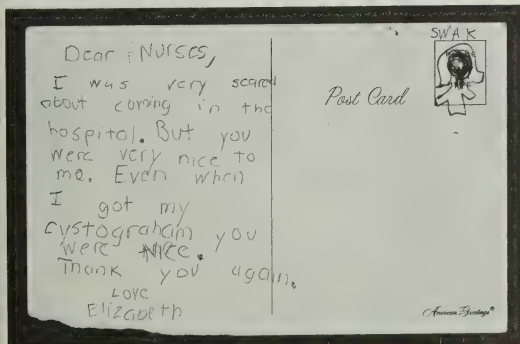 Dear Nurses,
I was very scared
about coming in the
hospital. But you
were very nice to
me. Even when
I got my
cystograham you
were NICE.
Thank you again.
Love
Elizabeth
Post Card
SWAK
American Greetings®